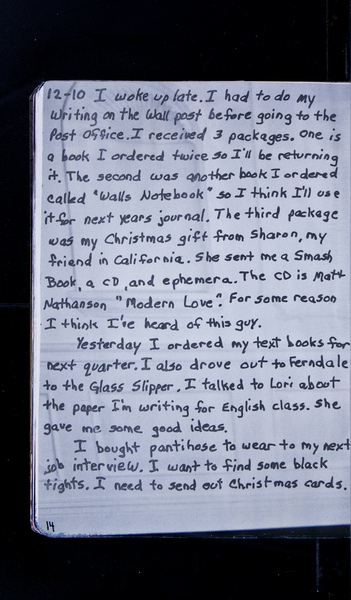 12-10 I woke up late. I had to do my
Writing on the Wall post before going to the
Post Office. I received 3 packages. One is
a book I ordered twice so I'll be returning
it. The second was another book I ordered
called "Walls Notebook" so I think I'll use
it for next years journal. The third package
was my Christmas gift from Sharon, my
friend in California. She sent me a Smash
Book, a CD, and ephemera. The CD is Matt
Nathanson "Modern Love". For some reason
I think I've heard of this guy.
Yesterday I ordered my text books for
next quarter. I also drove out to Ferndale
to the Glass Slipper. I talked to Lori about
the paper I'm writing for English class. She
gave me some good ideas.
I bought pantihose to wear to my next
job interview. I want to find some black
tights. I need to send out Christmas cards.
14